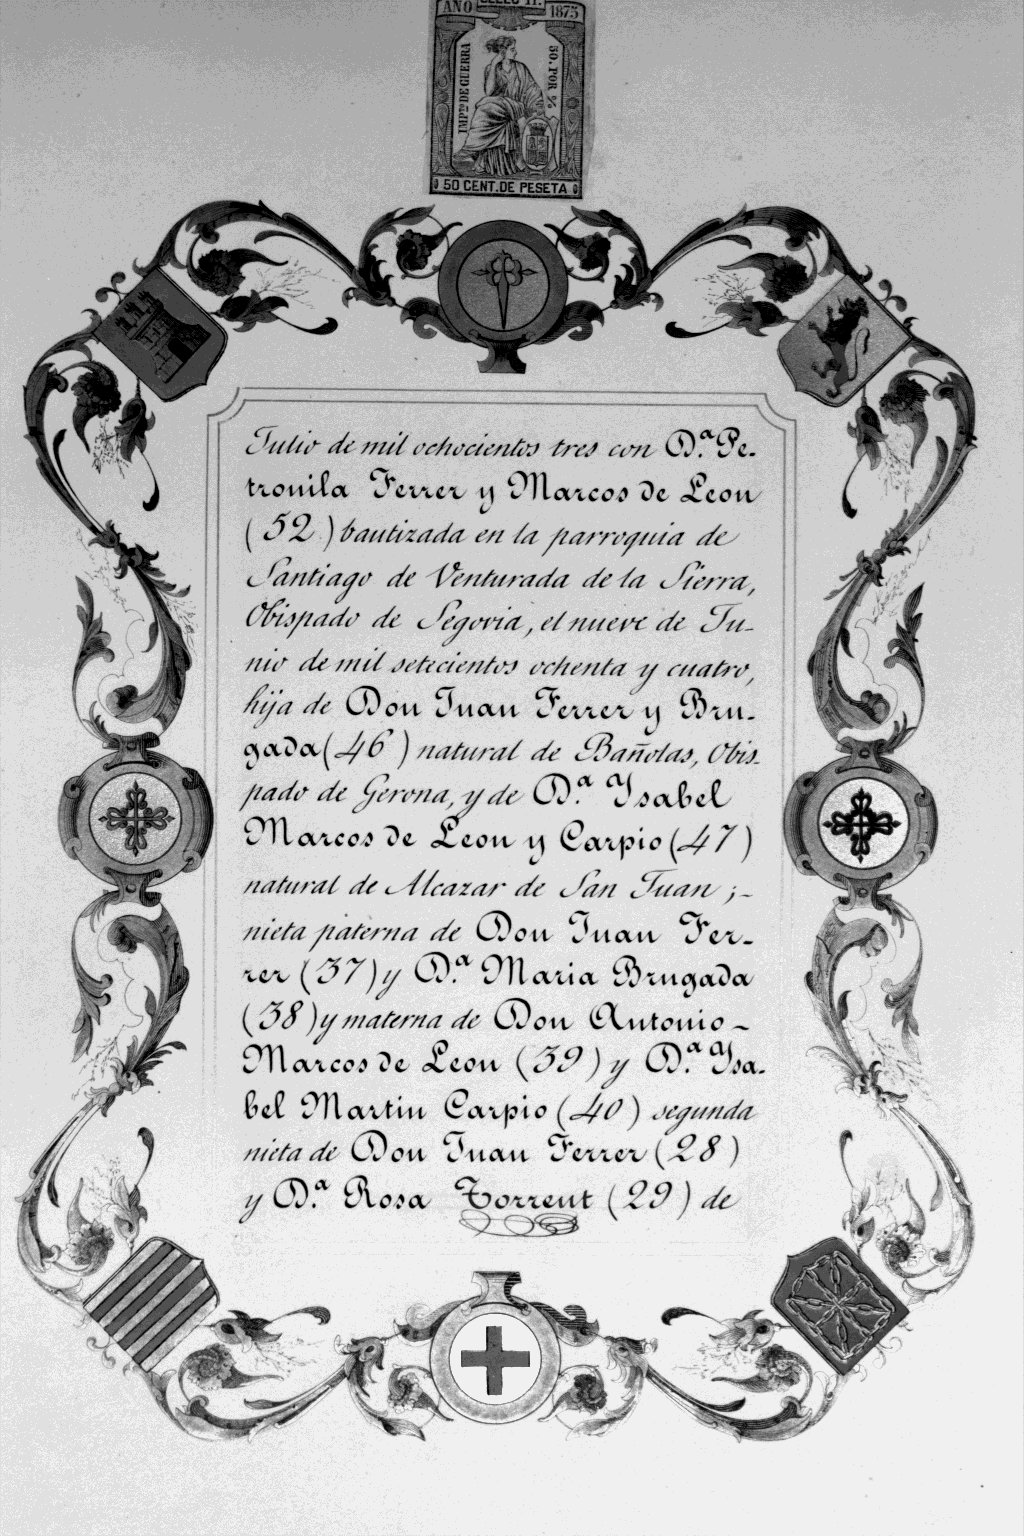 AÑO SELLO 11º 1875
IMP^TO DE GUERRA
50. POR %
50 CENT. DE PESETA
Julio de mil ochocientos tres con D.ª Pe-
tronila Ferrer y Marcos de Leon
(52) bautizada en la parroquia de
Santiago de Venturada de la Sierra,
Obispado de Segovia, el nueve de Ju-
nio de mil setecientos ochenta y cuatro,
hija de Don Juan Ferrer y Bru-
gada (46) natural de Bañolas, Obis-
pado de Gerona, y de D.ª Ysabel
Marcos de Leon y Carpio (47)
natural de Alcazar de San Juan ;-
nieta paterna de Don Juan Fer-
rer (37) y D.ª Maria Brugada
(38) y materna de Don Antonio-
Marcos de Leon (39) y D.ª Ysa-
bel Martin Carpio (40) segunda
nieta de Don Juan Ferrer (28)
y D.ª Rosa Torrent (29) de